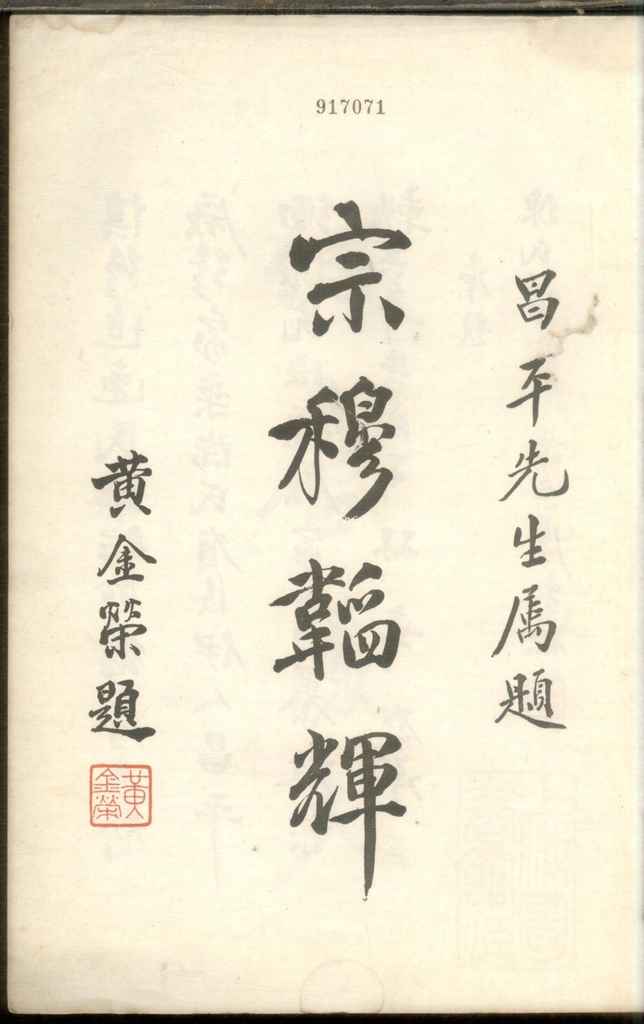 917071
昌平先生属題
宗穆韜輝
黄金榮題
黃金榮